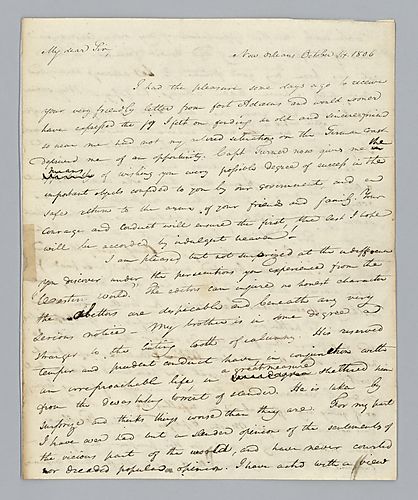 My dear Sir, New Orleans October 24 1806
I had the pleasure some days ago to receive
your very friendly letter from fort Adams and would sooner
have expressed the joy I felt on finding an old and sincere friend
so near me had not my situation on the German Coast
deprived me of an opportunity. Capt Turner now gives me the
means of wishing you every possible degree of success in the
important objects confided to you by our government and a
safe return to the arms of your friends and family. Your
courage and conduct will ensure the first, the last I hope
will be accorded by indulgent heaven.
I am pleased but not surprized at the indifference
you discover under the persecutions you experienced from the
"Western World." The editors can injure no honest character
the abettors are despicable and beneath any very
serious notice - My brother is in some degree a
stranger to the biting tooth of calumny. His reserved
temper and prudent conduct have in conjunction with
an irreproachable life in a great measure sheltered him
from the devastating torrent of slander. He is taken by
surprize and thinks things worse than they are. For my part
I have ever had but a slender opinion of the sentiments of
the vicious part of the world, and have never courted
nor dreaded popular opinion. I have acted with a view